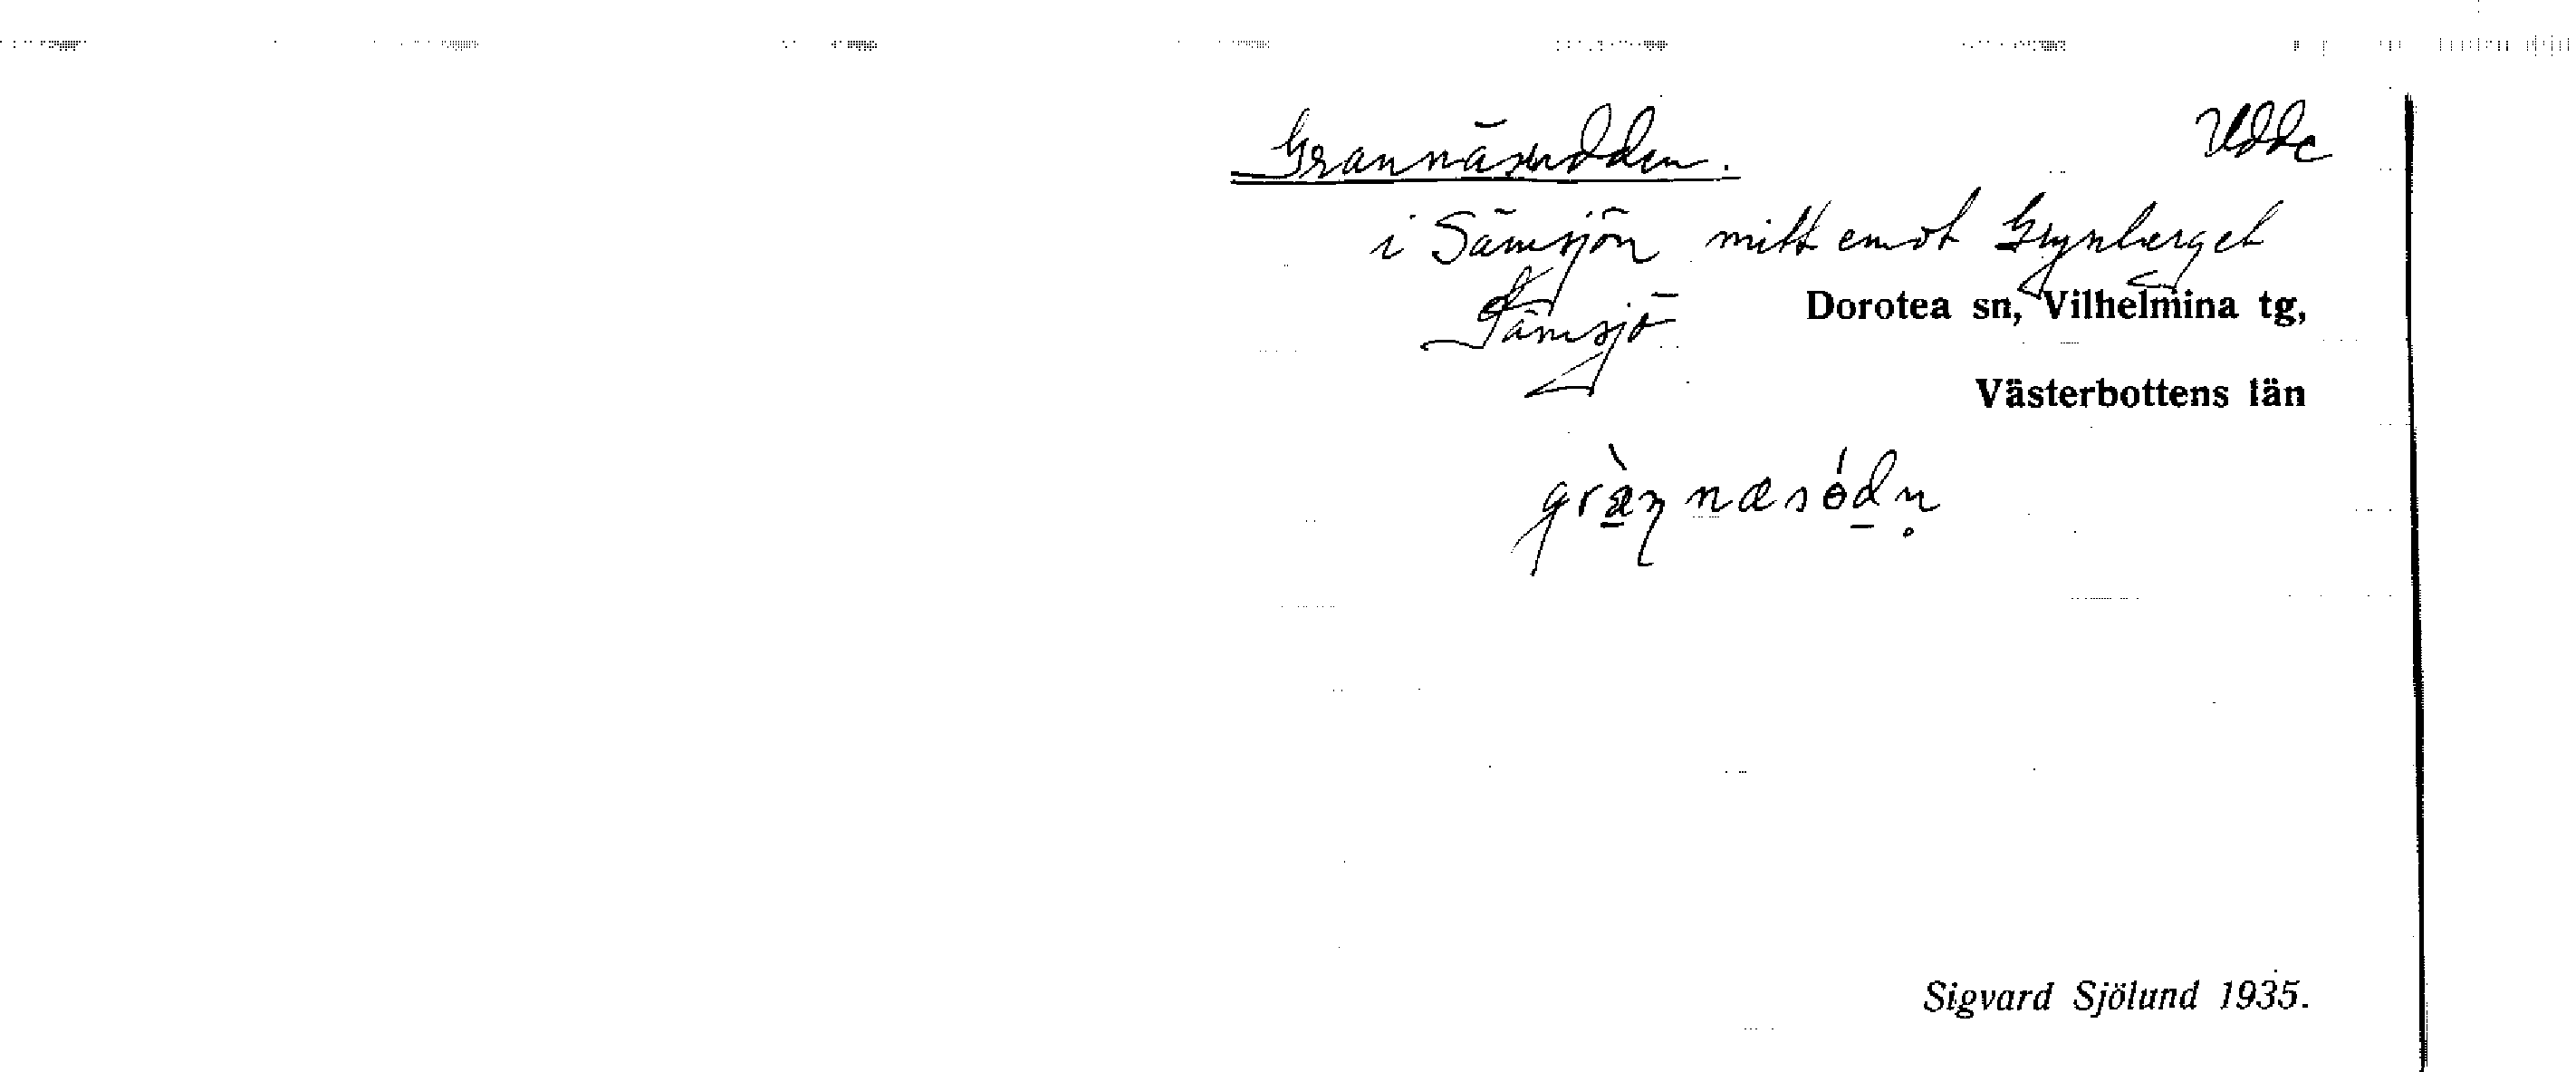 Grannäsudden. Udde
i Sämsjön mitt emot Grynberget
Sämsjö Dorotea sn, Vilhelmina tg,
Västerbottens län
gràŋnæsódn̥
Sigvard Sjölund 1935.